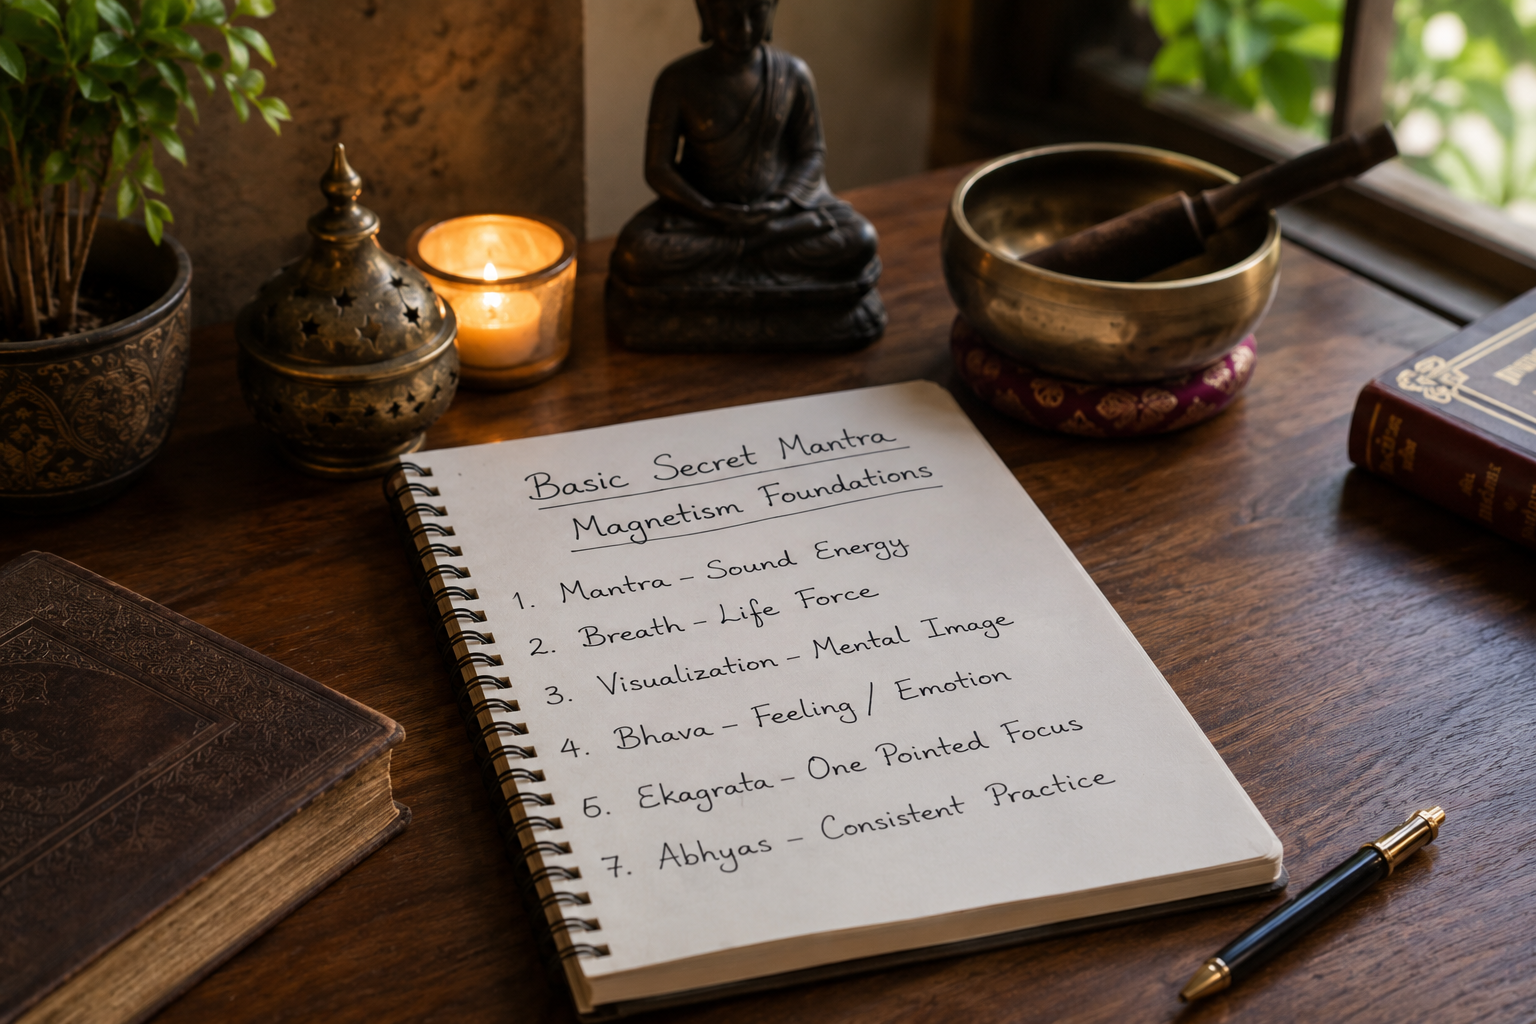 Basic Secret Mantra
Magnetism Foundations
1. Mantra – Sound Energy
2. Breath – Life Force
3. Visualization – Mental Image
4. Bhava – Feeling / Emotion
6. Ekagrata – One Pointed Focus
7. Abhyas – Consistent Practice